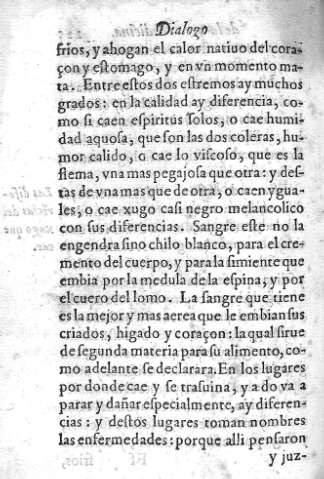 Dialogo
frios, y ahogan el calor natiuo del cora-
çon y estomago, y en vn momento ma-
ta. Entre estos dos estremos ay muchos
grados: en la calidad ay diferencia, co-
mo si caen espiritus solos, o cae humi
dad aquosa, que son las dos coleras, hu-
mor calido, o cae lo viscoso, que es la
flema, vna mas pegajosa que otra: y des-
tas de vna mas que de otra, o caen ygua-
les, o cae xugo casi negro melancolico
con sus diferencias. Sangre este no la
engendra sino chilo blanco, para el cre-
mento del cuerpo, y para la simiente que
embia por la medula de la espina, y por
el cuero del lomo. La sangre que tiene
es la mejor y mas aerea que le embian sus
criados, higado y coraçon: la qual sirue
de segunda materia para su alimento, co-
mo adelante se declarara. En los lugares
por donde cae y se trasuina, y a do va a
parar y dañar especialmente, ay diferen-
cias: y destos lugares toman nombres
las enfermedades: porque alli pensaron
y juz-